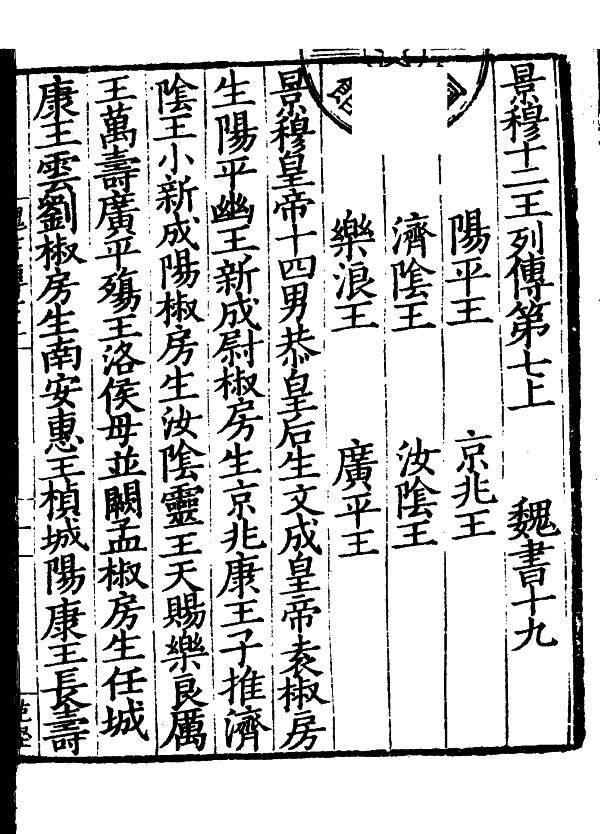 景穆十二王列傳第七上 魏書十九
陽平王 京兆王
濟陰王 汝陰王
樂浪王 廣平王
景穆皇帝十四男恭皇后生文成皇帝袁椒房
生陽平幽王新成尉椒房生京兆康王子推濟
陰王小新成陽椒房生汝陰靈王天賜樂良厲
王萬壽廣平殤王洛侯母並闕孟椒房生任城
康王雲劉椒房生南安惠王楨城陽康王長壽